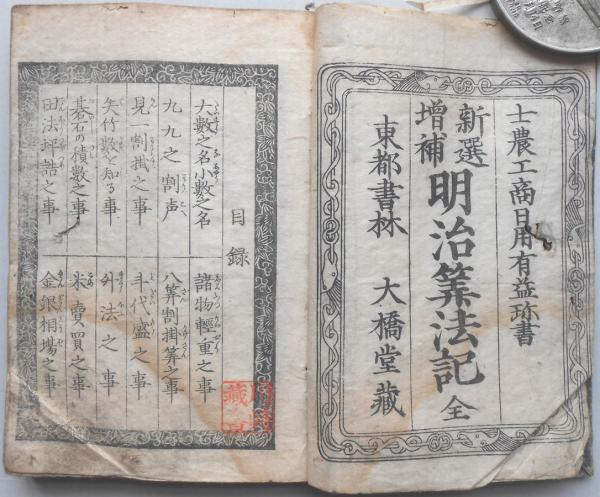 士農工商日用有益珎書
新選
増補
明治筭法記
全
東都書林 大橋堂藏
目録
大數之名小數之名
諸物輕重之事
九九之割声
八筭割掛筭之事
見一割掛之事
斗代盛之事
矢竹數を知る事
舛法之事
碁石の積數之事
米賣買之事
田法坪詰之事
金銀相場之事